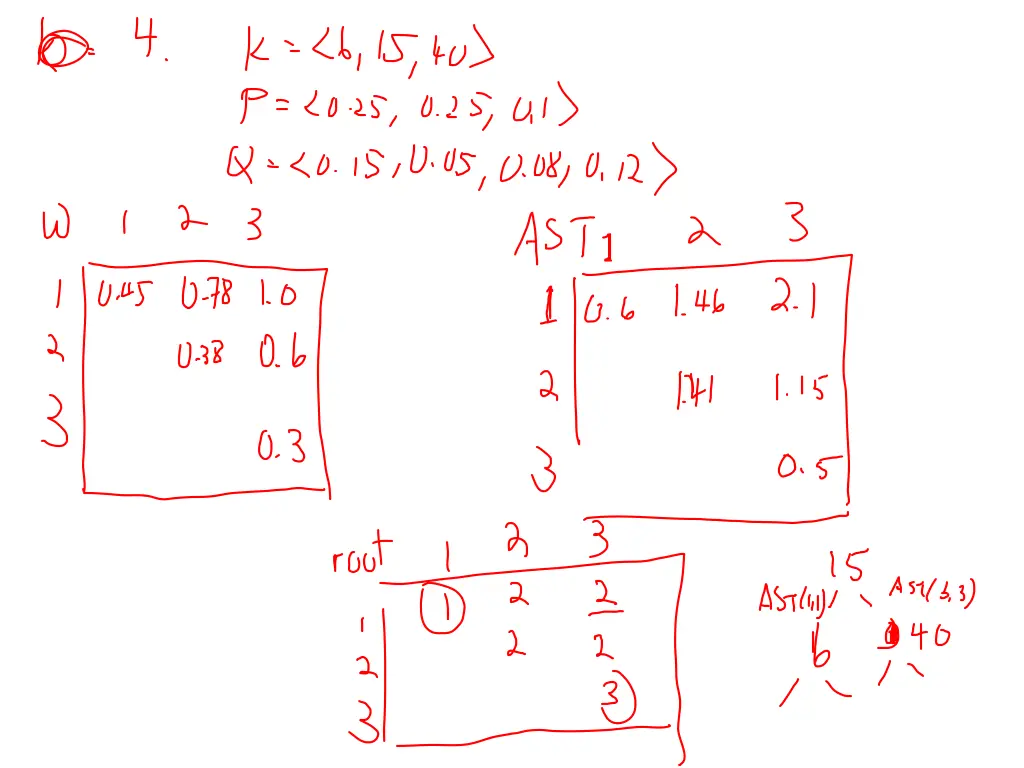 4.
K = <6, 15, 40>
P = <0.25, 0.25, 0.1>
Q = <0.15, 0.05, 0.08, 0.12>
W 1 2 3
1 0.45 0.78 1.0
2 0.38 0.6
3 0.3
AST 1 2 3
1 0.6 1.46 2.1
2 1.15
3 0.5
root 1 2 3
1 1 2 2
2 2 2
3 3
15
AST(1,1) AST(3,3)
6 40